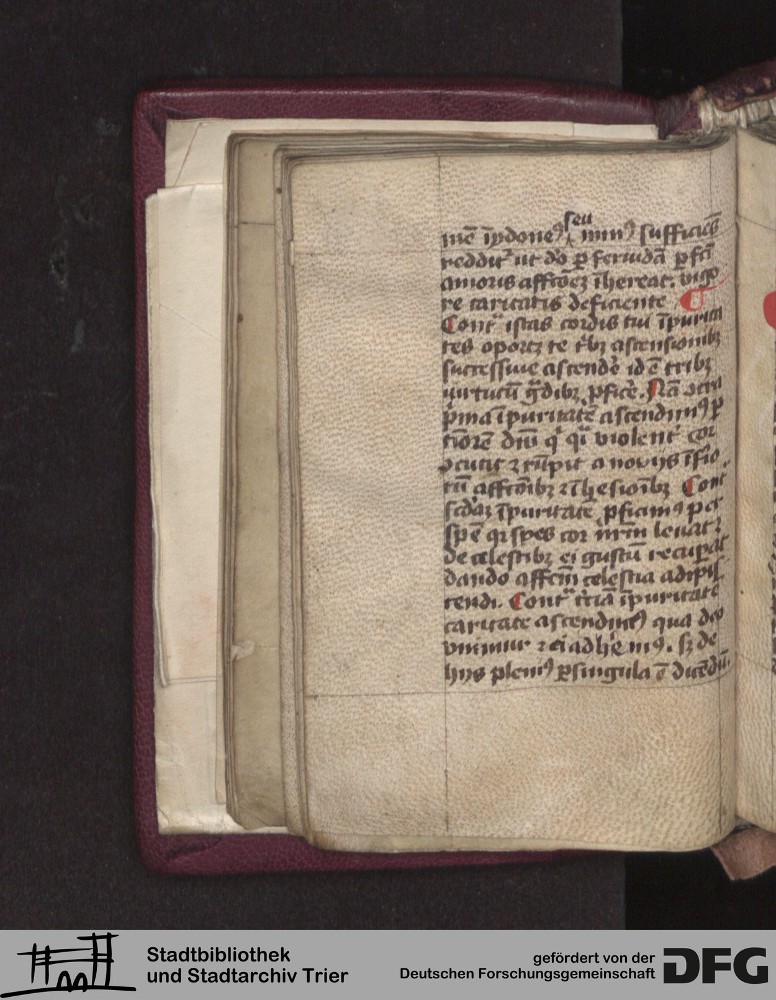 seu
mē ȳdone9 min9 sufficiēs
reddit' ut dō p feruidā p fcī
amoris affcōez īhereat. vigo
re caritatis deficiente
Cont' istas cordis tui īpurita
tes oportz te t'bz ascensionibz
successiue ascendē id ē tribz
uirtutū gdibz pficē. Nā
pma īpuritatē ascendim9 p
timorē dm q' violent' cor
cutit z rūpit a nociis
affcōibz z īhesionibz Cont'
scdaz īpuritatē pficim9 per
spē qz spes cor nrm leuat z
de celestibz ei gustū recuperat
dando affcm celestia adipis
cendi. Cont' t'ciā īpuritatē
caritate ascendim9 qua deo
vnimur z ei adherem9. sz de
hijs pleni9 p singula ē dicēdū.
Stadtbibliothek
und Stadtarchiv Trier
gefördert von der
Deutschen Forschungsgemeinschaft
DFG